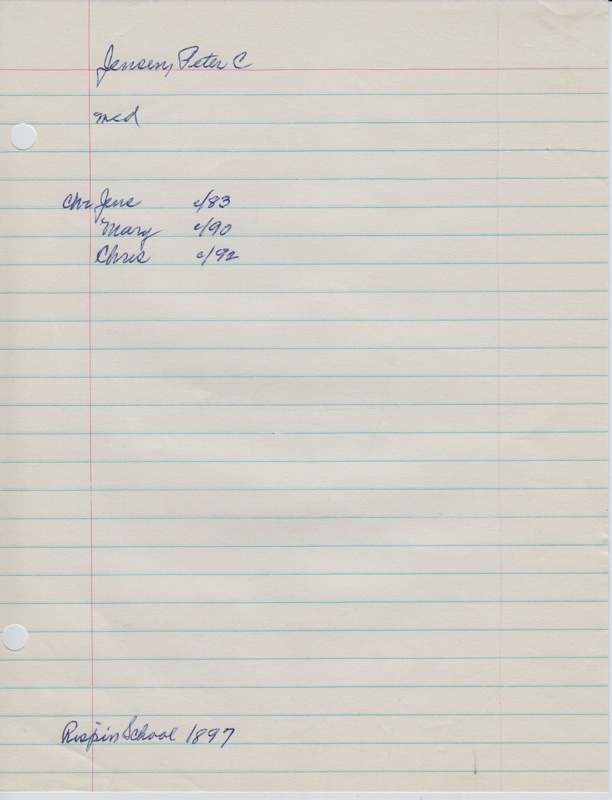 Jensen, Peter C
md
Ch: Jens c/83
Mary c/90
Chris c/92
Rispin School 1897